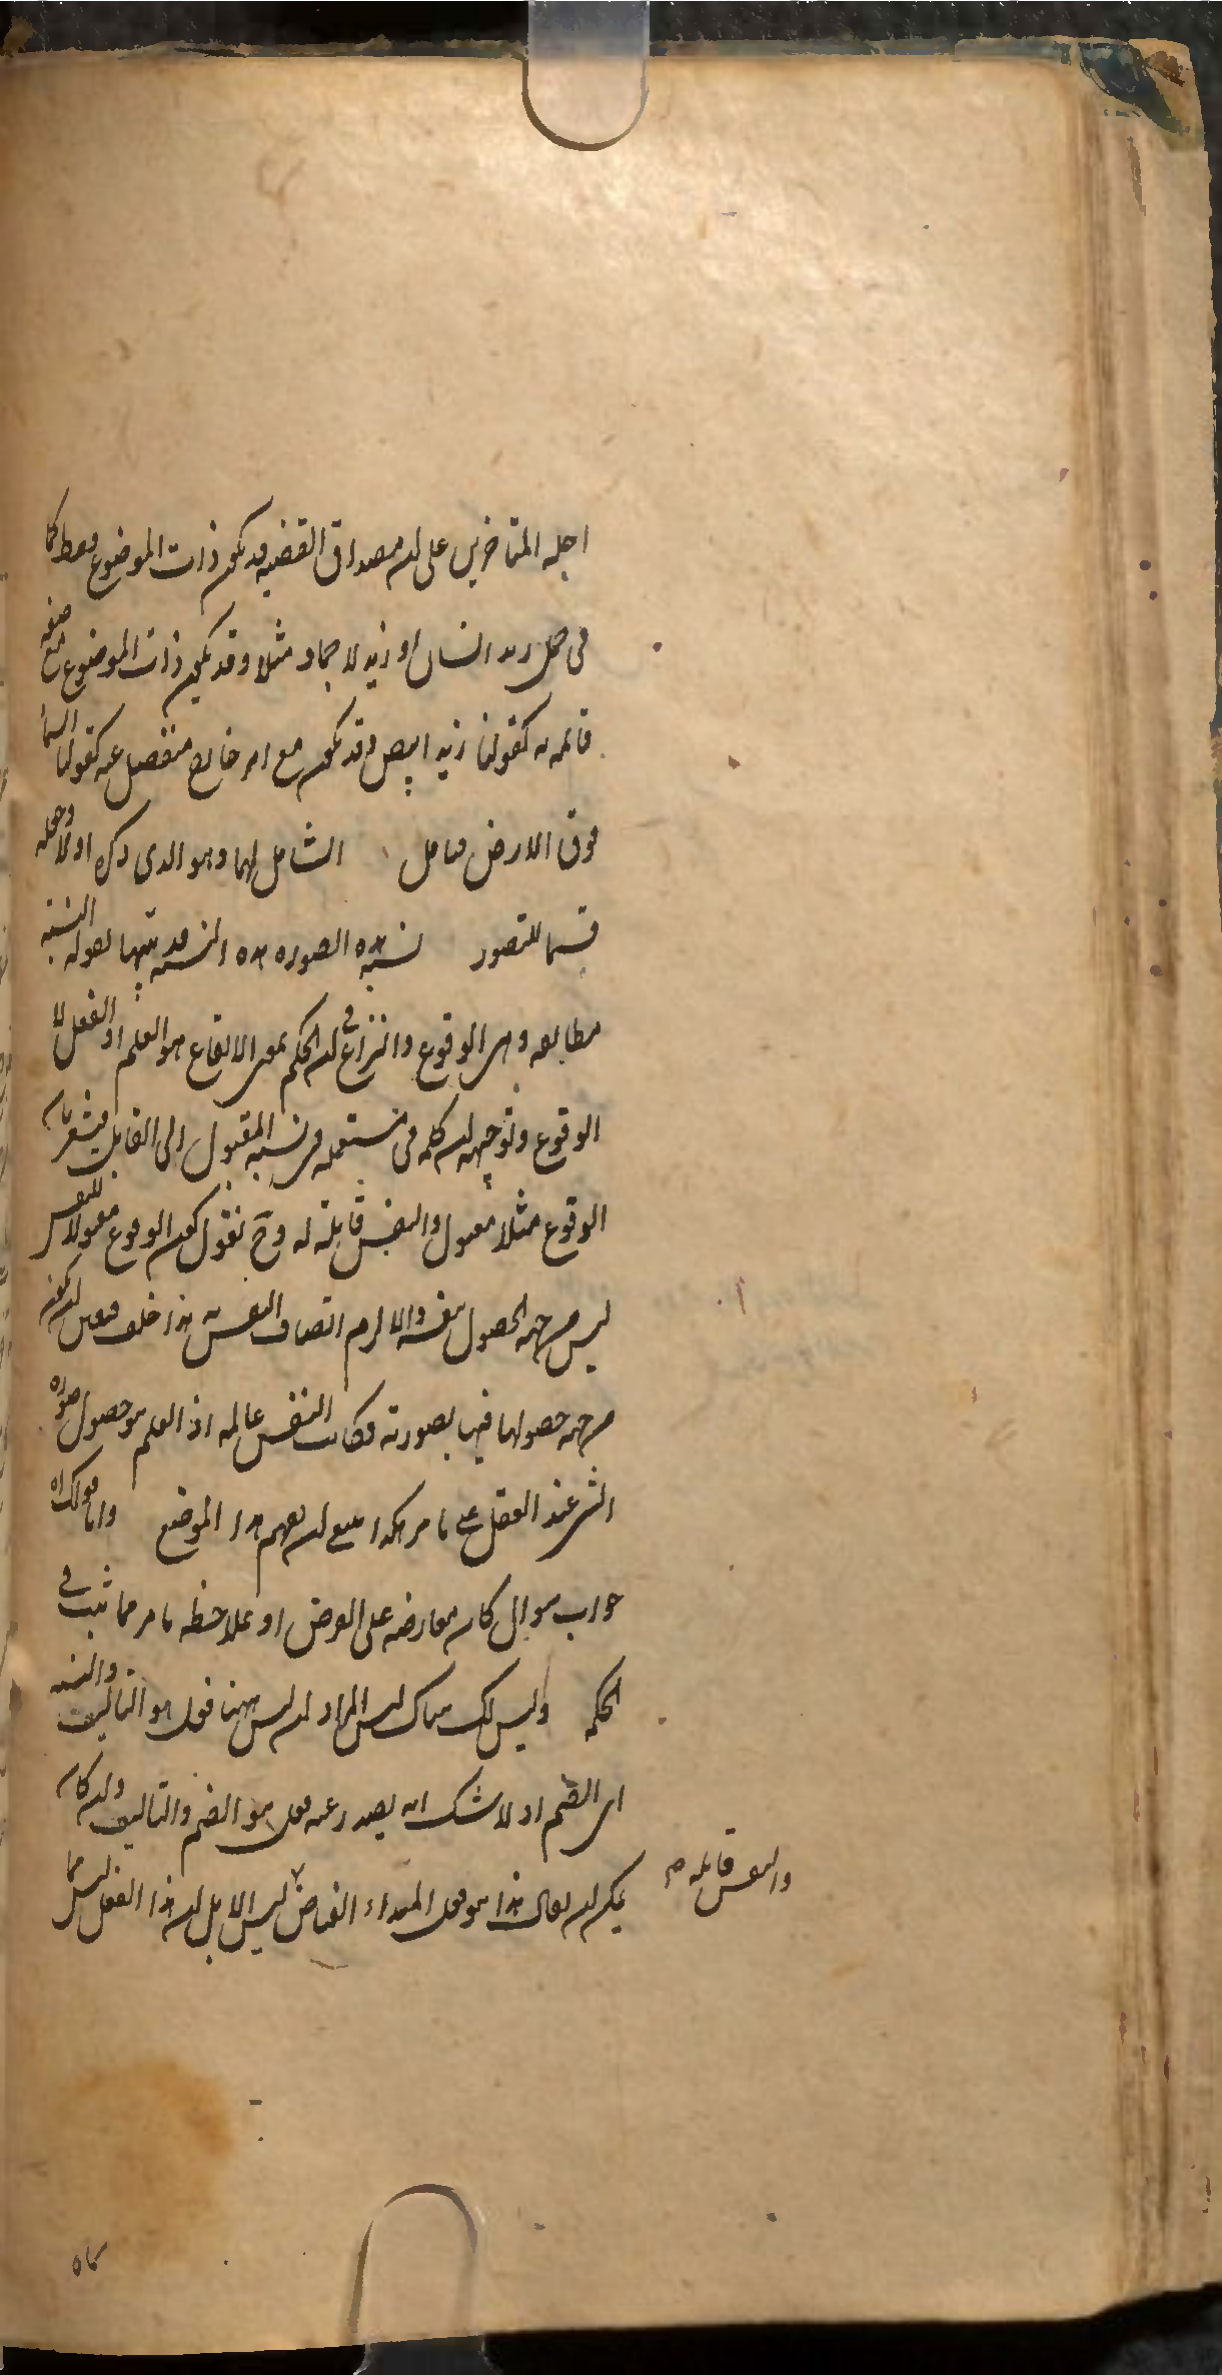 اجلة المتاخرين على ان مصداق القضيه قد يكون ذات الموضوع فقط كما
فى حمل زيد انسان او زيد لا جماد مثلا وقد يكون ذات الموضوع مع صفه
قائمه به كقولنا زيد ابيض وقد يكون مع امر خارج منفصل عنه كقولنا السما
فوق الارض فتامل الشامل لهما وهو الذى ذكره اولا وجعله
قسما للتصور نسبه هذه الصوره هذه النسبه قد يتنبها بقوله النسبة
مطابقه وهى الوقوع والنزاع فى ان الحكم بمعنى الايقاع هو العلم او الفعل لا
الوقوع وتوجيهه ان كلمه فى مستعمله فى نسبه المقبول الى القابل فيشعر بان
الوقوع مثلا مقبول والنفس قابلة له وح نقول كون الوقوع مقبولا للنفس
ليس من جهه الحصول بنفسه والا لزم اتصاف النفس به هذا خلف فتعين ان يكونه
من جهه حصولها فيها بصورته فكانت النفس عالمه اذ العلم هو حصول صوره
الشى عند العقل على ما مر هكذا ينبغى ان يفهم هذا الموضع واما
جواب سوال كان معارضه على العرض او علاحظه ما مر مما ثبت فى
الحكمه وليس لك هناك ليس المراد ان ليس ههنا فعل هو التاليف والنسبه
اى الضم اذ لا شك انه يصدر عنه فعل هو الضم والتاليف وان كان
يمكن ان يقال هذا هو فعل المبداء الفياض ليس الا بل ان هذا الفعل ليس مما
والنفس قابله م